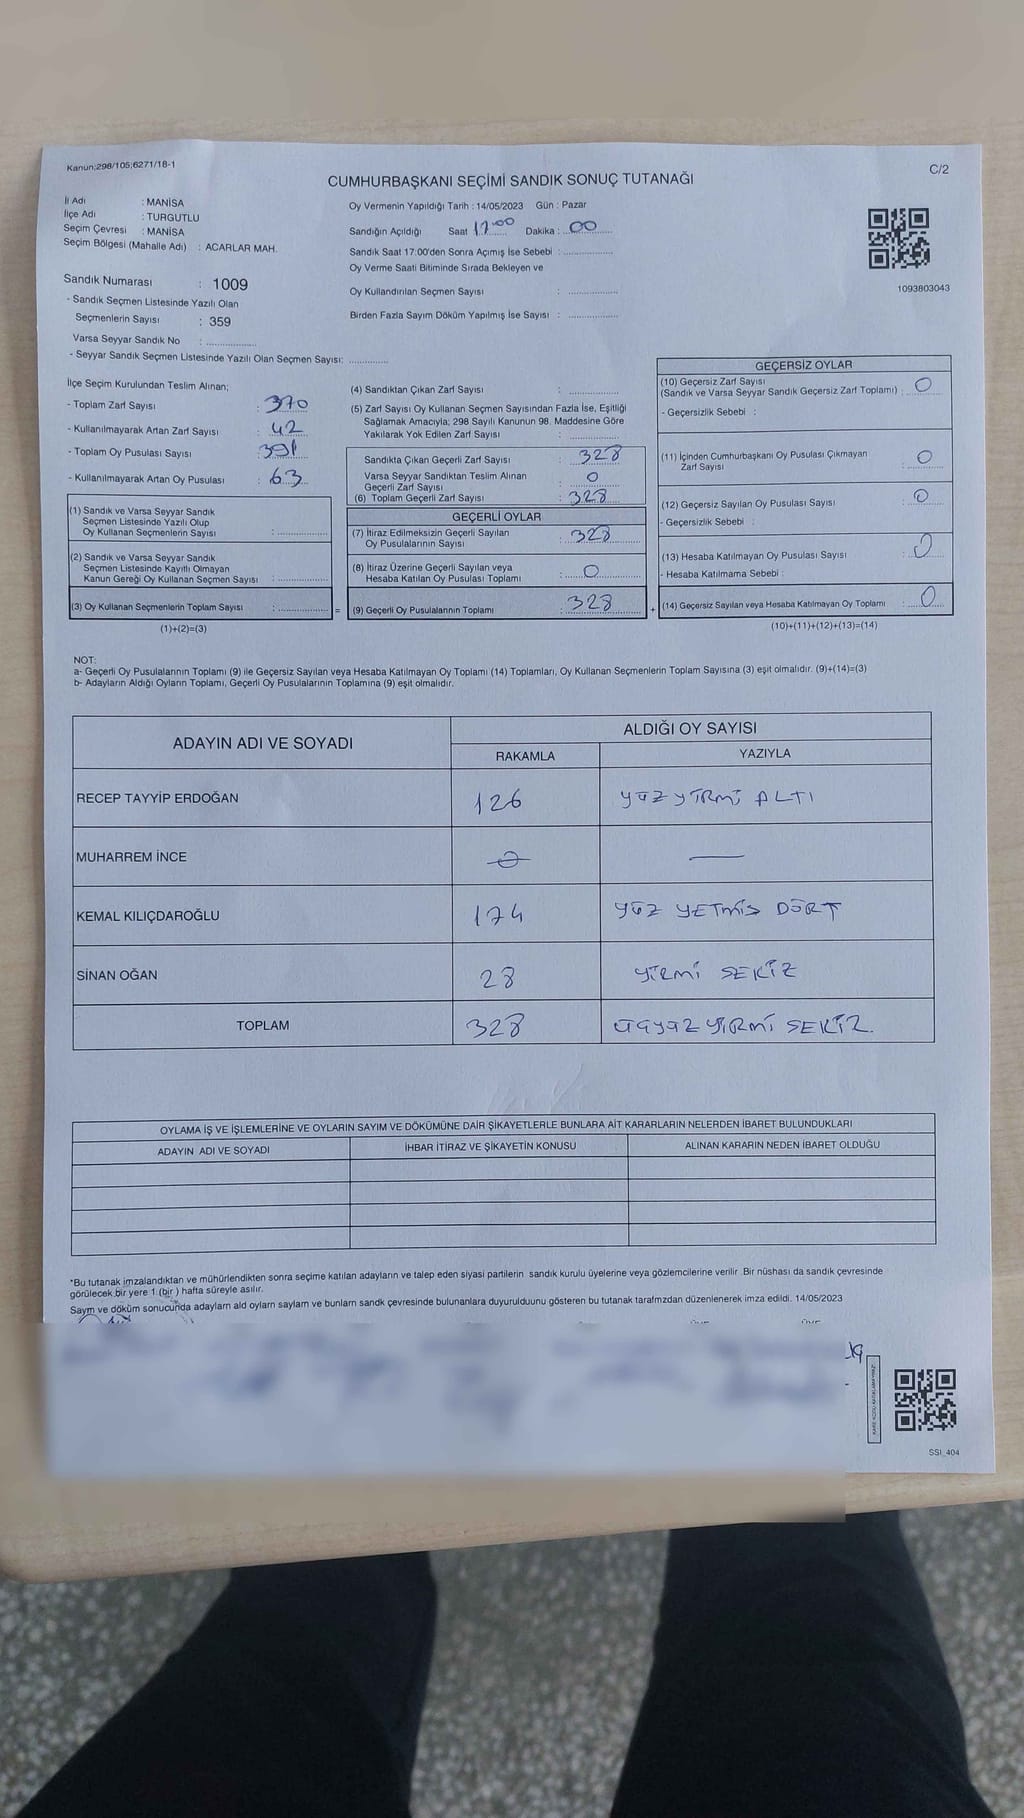 Kanun;298/105;6271/18-1
C/2
CUMHURBAŞKANI SEÇİMİ SANDIK SONUÇ TUTANAĞI
İl Adı : MANİSA
İlçe Adı : TURGUTLU
Seçim Çevresi : MANİSA
Seçim Bölgesi (Mahalle Adı) : ACARLAR MAH.
Sandık Numarası : 1009
- Sandık Seçmen Listesinde Yazılı Olan
Seçmenlerin Sayısı : 359
Varsa Seyyar Sandık No :
- Seyyar Sandık Seçmen Listesinde Yazılı Olan Seçmen Sayısı:
Oy Vermenin Yapıldığı Tarih : 14/05/2023 Gün : Pazar
Sandığın Açıldığı Saat 17.00 Dakika : 00
Sandık Saat 17:00'den Sonra Açımış İse Sebebi :
Oy Verme Saati Bitiminde Sırada Bekleyen ve
Oy Kullandırılan Seçmen Sayısı :
Birden Fazla Sayım Döküm Yapılmış İse Sayısı :
1093803043
İlçe Seçim Kurulundan Teslim Alınan;
- Toplam Zarf Sayısı : 370
- Kullanılmayarak Artan Zarf Sayısı : 42
- Toplam Oy Pusulası Sayısı : 391
- Kullanılmayarak Artan Oy Pusulası : 63
(1) Sandık ve Varsa Seyyar Sandık
Seçmen Listesinde Yazılı Olup
Oy Kullanan Seçmenlerin Sayısı :
(2) Sandık ve Varsa Seyyar Sandık
Seçmen Listesinde Kayıtlı Olmayan
Kanun Gereği Oy Kullanan Seçmen Sayısı :
(3) Oy Kullanan Seçmenlerin Toplam Sayısı : =
(1)+(2)=(3)
(4) Sandıktan Çıkan Zarf Sayısı :
(5) Zarf Sayısı Oy Kullanan Seçmen Sayısından Fazla İse, Eşitliği
Sağlamak Amacıyla; 298 Sayılı Kanunun 98. Maddesine Göre
Yakılarak Yok Edilen Zarf Sayısı :
Sandıkta Çıkan Geçerli Zarf Sayısı : 328
Varsa Seyyar Sandıktan Teslim Alınan
Geçerli Zarf Sayısı : 0
(6) Toplam Geçerli Zarf Sayısı : 328
GEÇERLİ OYLAR
(7) İtiraz Edilmeksizin Geçerli Sayılan
Oy Pusulalarının Sayısı : 328
(8) İtiraz Üzerine Geçerli Sayılan veya
Hesaba Katılan Oy Pusulası Toplamı : 0
(9) Geçerli Oy Pusulalarının Toplamı : 328 +
GEÇERSİZ OYLAR
(10) Geçersiz Zarf Sayısı
(Sandık ve Varsa Seyyar Sandık Geçersiz Zarf Toplamı) : 0
- Geçersizlik Sebebi :
(11) İçinden Cumhurbaşkanı Oy Pusulası Çıkmayan
Zarf Sayısı : 0
(12) Geçersiz Sayılan Oy Pusulası Sayısı : 0
- Geçersizlik Sebebi :
(13) Hesaba Katılmayan Oy Pusulası Sayısı : 0
- Hesaba Katılmama Sebebi :
(14) Geçersiz Sayılan veya Hesaba Katılmayan Oy Toplamı : 0
(10)+(11)+(12)+(13)=(14)
NOT:
a- Geçerli Oy Pusulalarının Toplamı (9) ile Geçersiz Sayılan veya Hesaba Katılmayan Oy Toplamı (14) Toplamları, Oy Kullanan Seçmenlerin Toplam Sayısına (3) eşit olmalıdır. (9)+(14)=(3)
b- Adayların Aldığı Oyların Toplamı, Geçerli Oy Pusulalarının Toplamına (9) eşit olmalıdır.
ADAYIN ADI VE SOYADI
ALDIĞI OY SAYISI
RAKAMLA YAZIYLA
RECEP TAYYİP ERDOĞAN 126 YÜZ YİRMİ ALTI
MUHARREM İNCE 0 —
KEMAL KILIÇDAROĞLU 174 YÜZ YETMİŞ DÖRT
SİNAN OĞAN 28 YİRMİ SEKİZ
TOPLAM 328 ÜÇYÜZ YİRMİ SEKİZ.
OYLAMA İŞ VE İŞLEMLERİNE VE OYLARIN SAYIM VE DÖKÜMÜNE DAİR ŞİKAYETLERLE BUNLARA AİT KARARLARIN NELERDEN İBARET BULUNDUKLARI
ADAYIN ADI VE SOYADI İHBAR İTİRAZ VE ŞİKAYETİN KONUSU ALINAN KARARIN NEDEN İBARET OLDUĞU
*Bu tutanak imzalandıktan ve mühürlendikten sonra seçime katılan adayların ve talep eden siyasi partilerin sandık kurulu üyelerine veya gözlemcilerine verilir. Bir nüshası da sandık çevresinde
görülecek bir yere 1 (bir ) hafta süreyle asılır.
Sayım ve döküm sonucunda adaylarn ald oylarn saylarn ve bunlarn sandk çevresinde bulunanlara duyurulduunu gösteren bu tutanak tarafmzdan düzenlenerek imza edildi. 14/05/2023
SSI_404